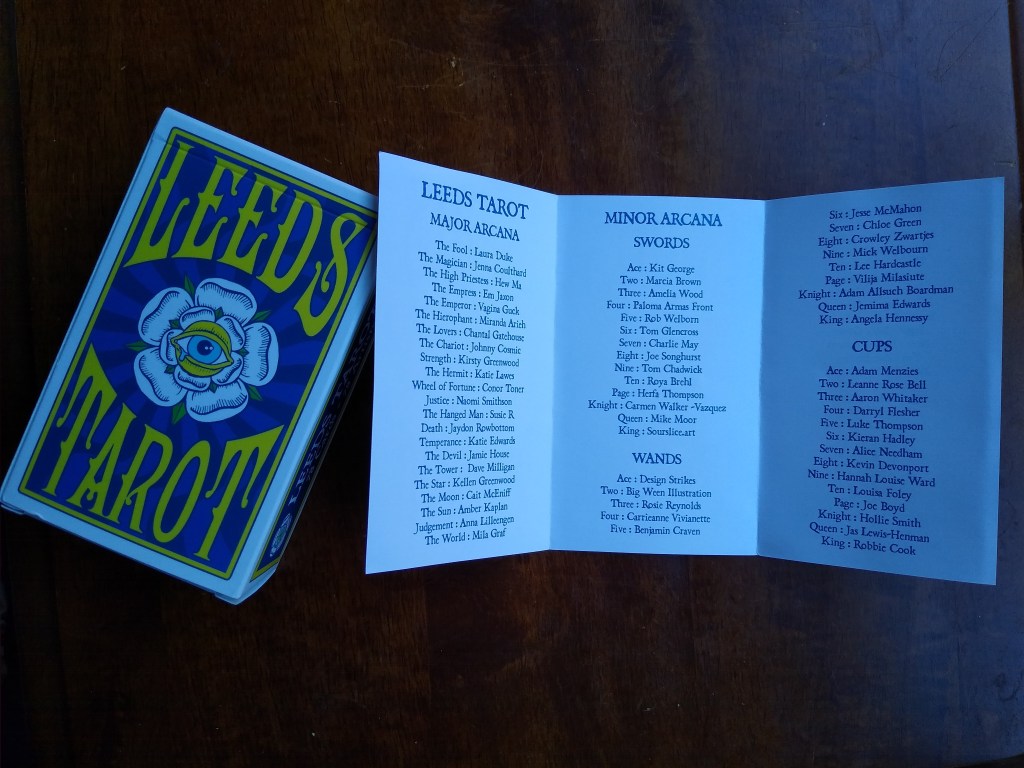 LEEDS
TAROT
LEEDS TAROT
MAJOR ARCANA
The Fool : Laura Duke
The Magician : Jenna Coulthard
The High Priestess : Hew Ma
The Empress : Em Jaxon
The Emperor : Vagina Guck
The Hierophant : Miranda Arieh
The Lovers : Chantal Gatehouse
The Chariot : Johnny Cosmic
Strength : Kirsty Greenwood
The Hermit : Katie Lawes
Wheel of Fortune : Conor Toner
Justice : Naomi Smithson
The Hanged Man : Susie R
Death : Jaydon Rowbottom
Temperance : Katie Edwards
The Devil : Jamie House
The Tower : Dave Milligan
The Star : Kellen Greenwood
The Moon : Cait McEniff
The Sun : Amber Kaplan
Judgement : Anna Lilleengen
The World : Mila Graf
MINOR ARCANA
SWORDS
Ace : Kit George
Two : Marcia Brown
Three : Amelia Wood
Four : Paloma Armas Front
Five : Rob Welborn
Six : Tom Glencross
Seven : Charlie May
Eight : Joe Songhurst
Nine : Tom Chadwick
Ten : Roya Brehl
Page : Herfa Thompson
Knight : Carmen Walker -Vazquez
Queen : Mike Moor
King : Sourslice.art
WANDS
Ace : Design Strikes
Two : Big Ween Illustration
Three : Rosie Reynolds
Four : Carrieanne Vivianette
Five : Benjamin Craven
Six : Jesse McMahon
Seven : Chloe Green
Eight : Crowley Zwartjes
Nine : Mick Welbourn
Ten : Lee Hardcastle
Page : Vilija Milasiute
Knight : Adam Allsuch Boardman
Queen : Jemima Edwards
King : Angela Hennessy
CUPS
Ace : Adam Menzies
Two : Leanne Rose Bell
Three : Aaron Whitaker
Four : Darryl Flesher
Five : Luke Thompson
Six : Kieran Hadley
Seven : Alice Needham
Eight : Kevin Devonport
Nine : Hannah Louise Ward
Ten : Louisa Foley
Page : Joe Boyd
Knight : Hollie Smith
Queen : Jas Lewis-Henman
King : Robbie Cook
LEEDS TAROT